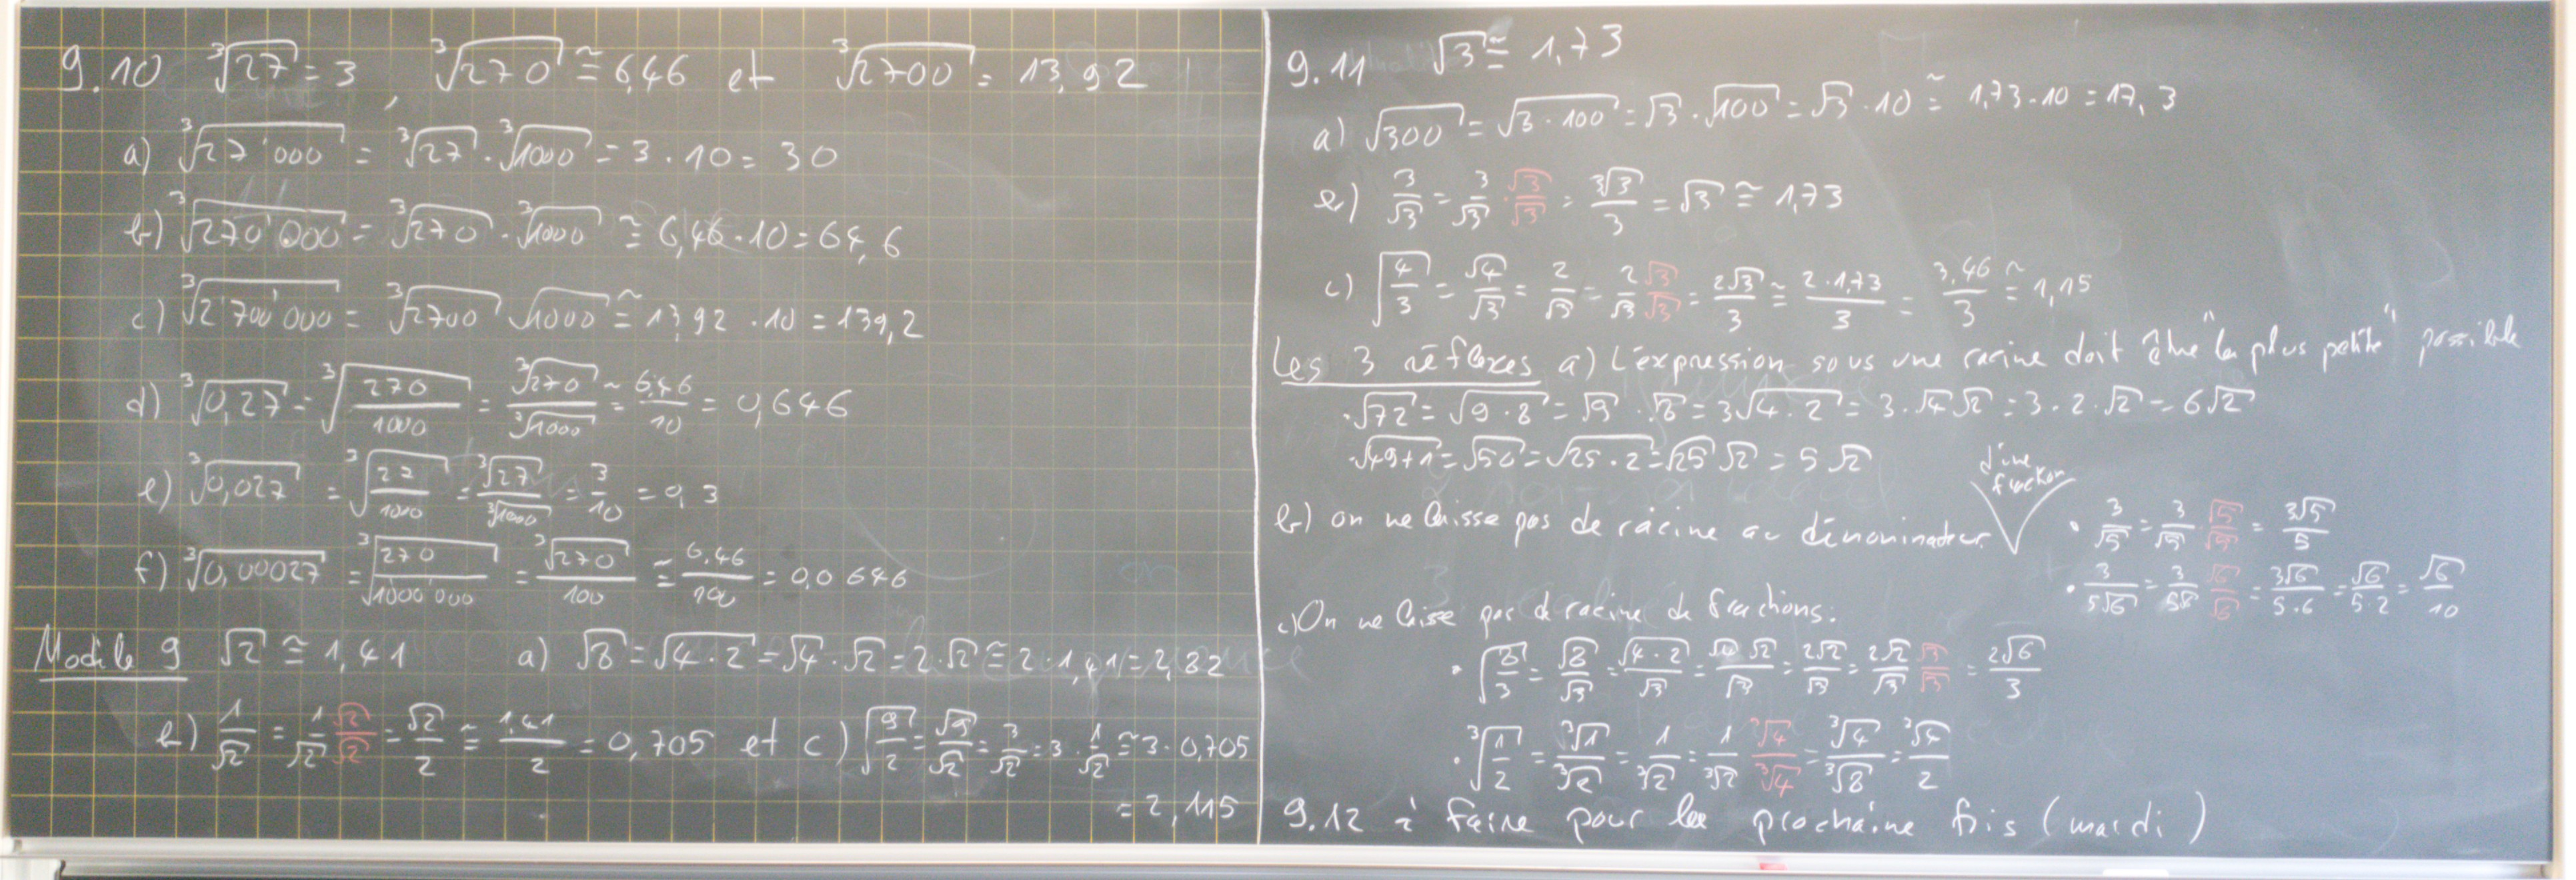 9.10 ∛27 = 3, ∛270 ≅ 6,46 et ∛2700 = 13,92
a) ∛27'000 = ∛27 · ∛1000 = 3 · 10 = 30
b) ∛270'000 = ∛270 · ∛1000 ≅ 6,46 · 10 = 64,6
c) ∛2'700'000 = ∛2700 √1000 ≅ 13,92 · 10 = 139,2
d) ∛0,27 = ∛(270/1000) = ∛270/∛1000 ≅ 6,46/10 = 0,646
e) ∛0,027 = ∛(27/1000) = ∛27/∛1000 = 3/10 = 0,3
f) ∛0,00027 = ∛(270/1000'000) = ∛270/100 ≅ 6.46/100 = 0,0646
Modèle 9 √2 ≅ 1,41 a) √8 = √(4 · 2) = √4 · √2 = 2 · √2 ≅ 2 · 1,41 = 2,82
b) 1/√2 = 1/√2 √2/√2 = √2/2 ≅ 1,41/2 = 0,705 et c) √(9/2) = √9/√2 = 3/√2 = 3 · 1/√2 ≅ 3 · 0,705
= 2,115
9.11 √3 ≅ 1,73
a) √300 = √(3 · 100) = √3 · √100 = √3 · 10 ≅ 1,73 · 10 = 17,3
b) 3/√3 = 3/√3 · √3/√3 = 3√3/3 = √3 ≅ 1,73
c) √(4/3) = √4/√3 = 2/√3 = 2/√3 √3/√3 = 2√3/3 ≅ 2 · 1,73/3 = 3,46/3 ≅ 1,15
Les 3 réflexes a) L'expression sous une racine doit être "la plus petite" possible
· √72 = √(9 · 8) = √9 · √8 = 3√(4 · 2) = 3 · √4 √2 = 3 · 2 · √2 = 6√2
· √(49+1) = √50 = √(25 · 2) = √25 √2 = 5√2
b) on ne laisse pas de racine au dénominateur d'une fraction
· 3/√5 = 3/√5 · √5/√5 = 3√5/5
· 3/5√6 = 3/5√6 √6/√6 = 3√6/5·6 = √6/5·2 = √6/10
c) On ne laisse pas de racine de fractions.
· √(8/3) = √8/√3 = √(4 · 2)/√3 = √4 √2/√3 = 2√2/√3 = 2√2/√3 √3/√3 = 2√6/3
· ∛(1/2) = ∛1/∛2 = 1/∛2 = 1/∛2 ∛4/∛4 = ∛4/∛8 = ∛4/2
9.12 à faire pour la prochaine fois (mardi)